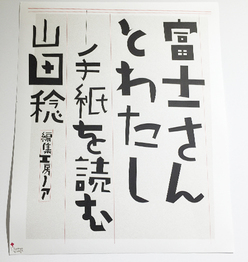 富士さん
とわたし
手紙を読む
山田稔
編集工房ノア